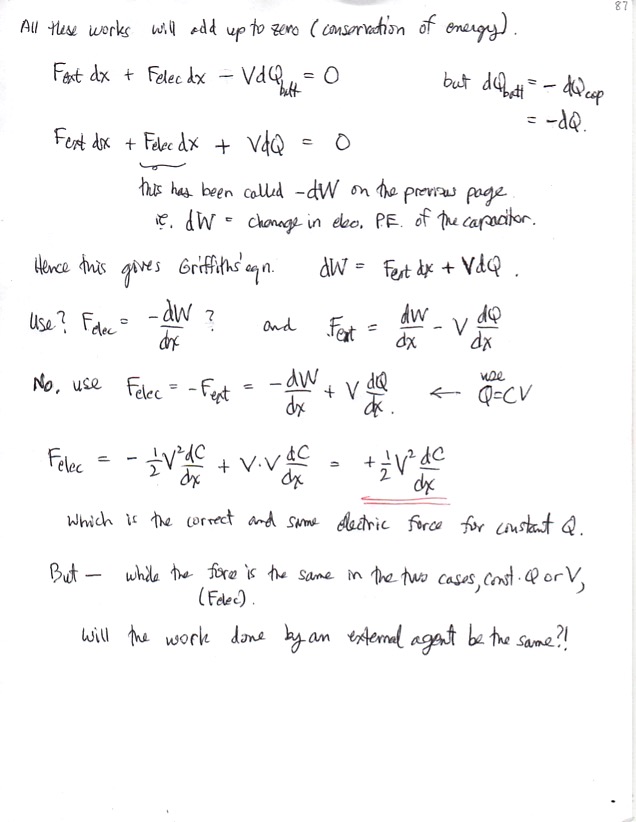 87
All these works will add up to zero (conservation of energy).
Fext dx + Felec dx − V dQbatt = 0 but dQbatt = − dQcap
= −dQ.
Fext dx + Felec dx + VdQ = 0
this has been called −dW on the previous page
ie. dW = change in elec. P.E. of the capacitor.
Hence this gives Griffiths' eqn. dW = Fext dx + VdQ .
Use? Felec = −dW/dx ? and Fext = dW/dx − V dQ/dx
No, use Felec = −Fext = −dW/dx + V dQ/dx. ← use Q=CV
Felec = − ½V² dC/dx + V·V dC/dx = +½V² dC/dx
which is the correct and same electric force for constant Q.
But — while the force is the same in the two cases, const. Q or V,
(Felec).
will the work done by an external agent be the same?!